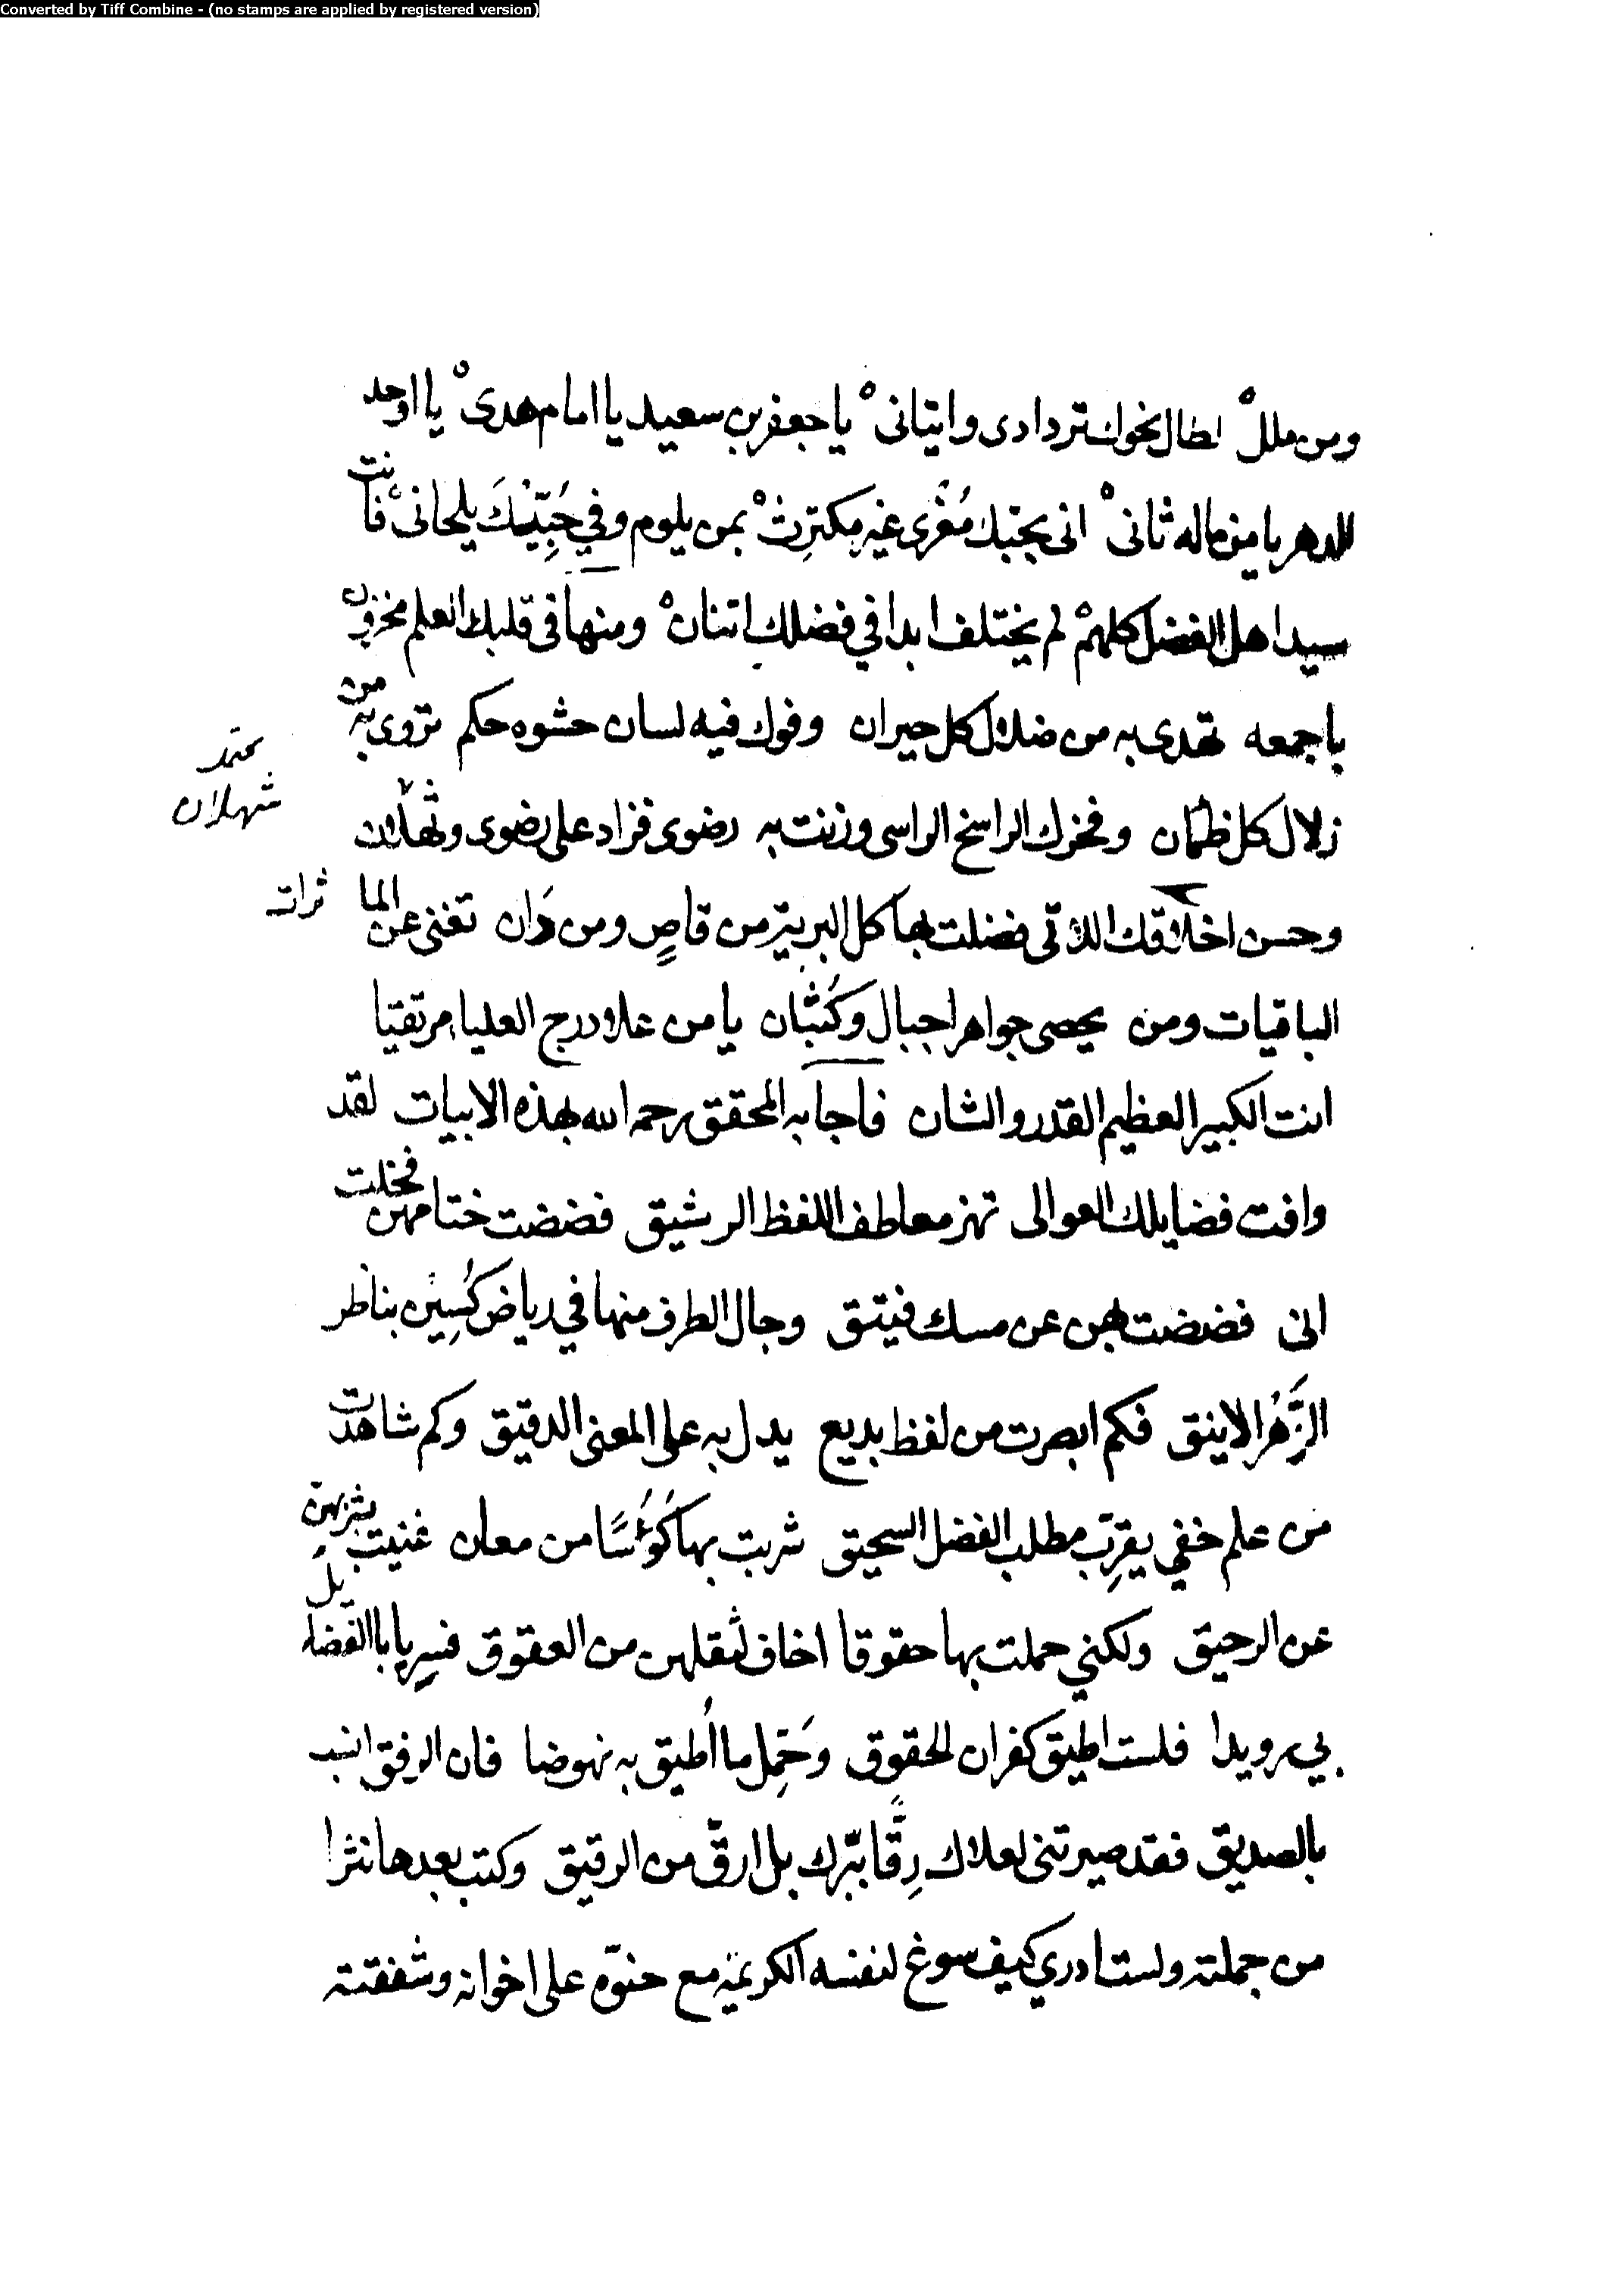 Converted by Tiff Combine - (no stamps are applied by registered version)
ومن ملل لطال نحوك تردادى واتيانى يا جعفر بن سعيد يا امام هدى يا اوحد
الدهر يا من ماله ثانى انى بحبك مُغْرى غير مكترِث بمن يلوم وفي حُبِّيْكَ يلحانى فانت
سيد اهل الفضل كلهم لم يختلف ابدا في فضلك اثنان ومنها فى قلبك العلم مخزون
باجمعه تهدى به من ضلال كل حيران وفوك فيه لسان حشوه حكم تروى به من
زلال كل ظمان وفخرك الراسخ الراسى وزنت به رضوى فزاد على رضوى وثهلان
محمد
شهلان
وحسن اخلاقك اللاتى فضلت بها كل البرية من قاصٍ ومن دَان تغنى عن الما
ثرات
الباقيات ومن يحصى جواهر اجبال وكُثْبَان يا من علا درج العليا مرتقيا
انت الكبير العظيم القدر والشان فاجابه المحقق رحمه الله بهذه الابيات لقد
وافت فضايلك العوالى تهز معاطف اللفظ الرشيق فضضت ختامهن فخلت
انى فضضت بهن عن مسك فتيق وجال الطرف منها في رياض كُسِينَ بناظر
الزَّهْرُ الانيق فكم ابصرت من لفظ بديع يدل به على المعنى الدقيق وكم شاهدت
من علم خفي يقرِبّ مطلب الفضل السحيق شربت بها كُؤُسًا من معان غنيت بشربهن
عن الرحيق ولكني حملت بها حقوقا اخاف لثقلهن من العقوق فسر يابا الفضايل
بي رويدا فلست اطيق كفران الحقوق وحَمِّل ما اُطيق به نهوضا فان الرفق انسب
بالصديق فقد صيرتنى لعلاك رِقًّا ببّرك بل ارقّ من الرقيق وكتب بعدها نثرا
من جملته ولست ادري كيف سوغ لنفسه الكريمة مع حنوّه على اخوانه وشفقته